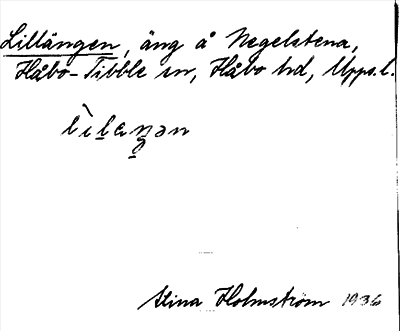 Lillängen, äng å Negelstena,
Håbo-Tibble sn, Håbo hd, Upps.l.
Stina Holmström 1936